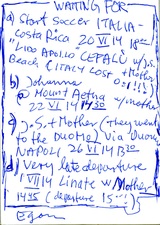 WAITING FOR
a) Start Soccer ITALIA-
Costa Rica 20 VI 14 18
"LIDO APOLLO" CEFALÙ w/J.S.
Beach (ITALY LOST + Mother
0:1!!!)
b) Johanna
@ Mount Aetna w/mother
22 VI 14 1430
c) J.S. + Mother (They went
to the DUOMO) Via Duomo
NAPOLI 26 VI 14 1330
d) Very late departure
1 VII 14 Linate w/Mother
1435 (departure 15